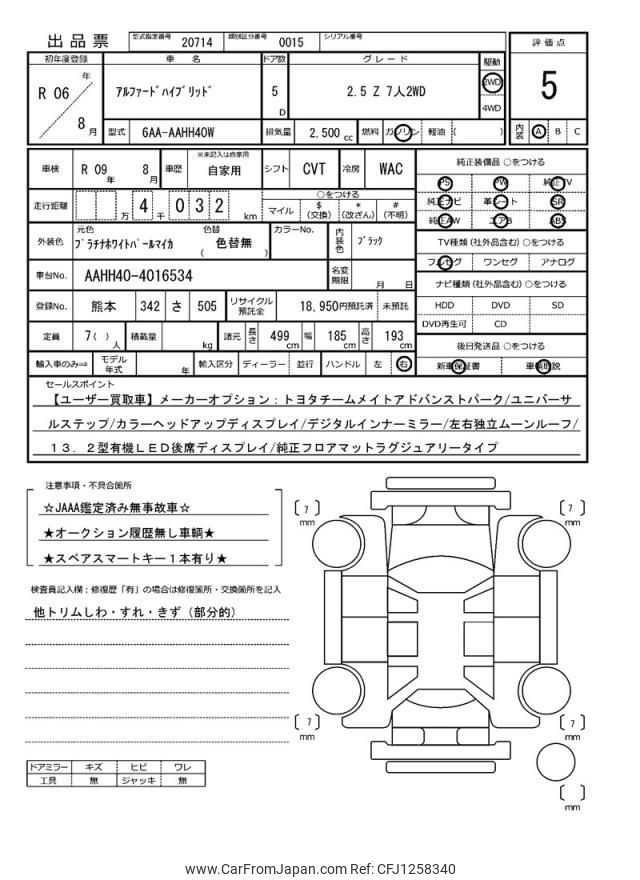 出品票 型式指定番号 20714 類別区分番号 0015 シリアル番号
評価点
5
内装 A B C
初年度登録 車名 ドア数 グレード 駆動
R 06 年 8 月
アルファードハイブリッド 5 D 2.5 Z 7人2WD 2WD 4WD
型式 6AA-AAHH40W 排気量 2,500 cc 燃料 ガソリン 軽油 ( )
車検 R 09 年 8 月 車歴 ※未記入は自家用 自家用 シフト CVT 冷房 WAC
走行距離 万 4 千 0 3 2 km
○をつける
マイル $(交換) *(改ざん) #(不明)
外装色 元色 プラチナホワイトパールマイカ 色替 ( 色替無 ) カラーNo. 内装色 ブラック
車台No. AAHH40-4016534 名変期限 月 日
登録No. 熊本 342 さ 505 リサイクル預託金 18,950円預託済 未預託
定員 7( ) 人 積載量 kg 諸元 長さ 499 cm 幅 185 cm 高さ 193 cm
輸入車のみ⇒ モデル年式 年 輸入区分 ディーラー 並行 ハンドル 左 右
純正装備品 ○をつける
PS PW 純正TV
純正ナビ 革シート SR
純正AW エアB ABS
TV種類 (社外品含む) ○をつける
フルセグ ワンセグ アナログ
ナビ種類 (社外品含む) ○をつける
HDD DVD SD
DVD再生可 CD
後日発送品 ○をつける
新車保証書 車輌取説
セールスポイント
【ユーザー買取車】メーカーオプション:トヨタチームメイトアドバンストパーク/ユニバーサ
ルステップ/カラーヘッドアップディスプレイ/デジタルインナーミラー/左右独立ムーンルーフ/
13.2型有機LED後席ディスプレイ/純正フロアマットラグジュアリータイプ
注意事項・不具合箇所
☆JAAA鑑定済み無事故車☆
★オークション履歴無し車輌★
★スペアスマートキー1本有り★
検査員記入欄:修復歴「有」の場合は修復箇所・交換箇所を記入
他トリムしわ・すれ・きず(部分的)
ドアミラー キズ ヒビ ワレ
工具 無 ジャッキ 無
[ 7 ] mm
[ 7 ] mm
[ 7 ] mm
[ 7 ] mm
[ ] mm
www.CarFromJapan.com Ref: CFJ1258340